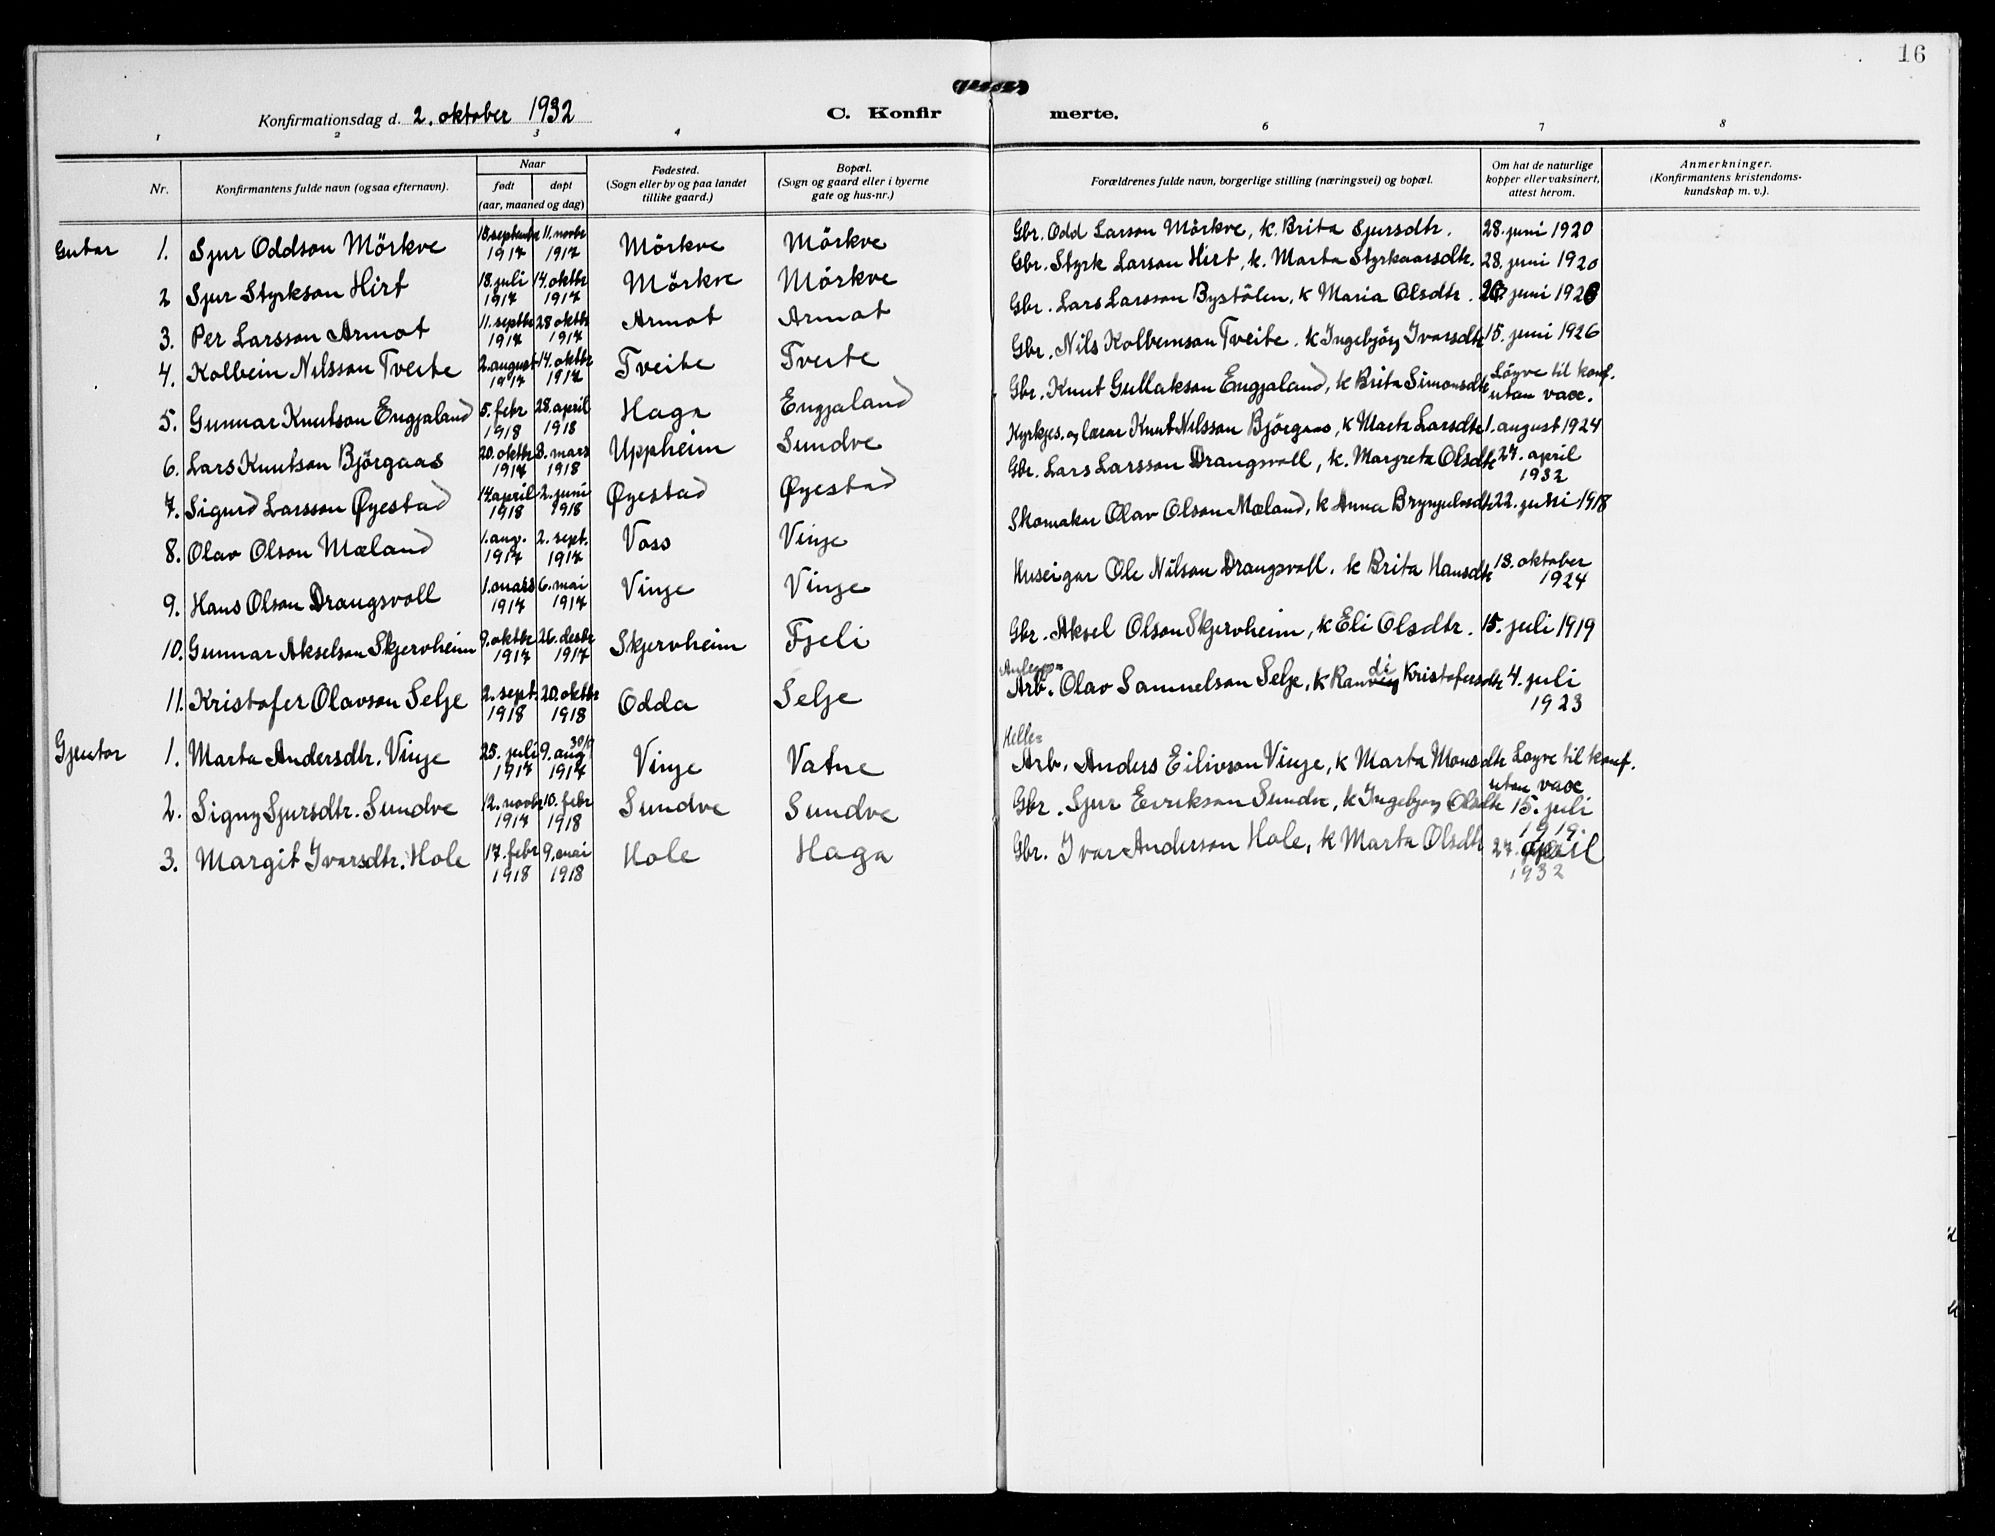 16
Konfirmationsdag d. 2. oktober 1932
C. Konfirmerte.
1 2 3 4 6 7 8
Nr. Konfirmantens fulde navn (ogsaa efternavn). Naar født døpt (aar, maaned og dag) Fødested. (Sogn eller by og paa landet tillike gaard.) Bopæl. (Sogn og gaard eller i byerne gate og hus-nr.) Forældrenes fulde navn, borgerlige stilling (næringsvei) og bopæl. Om hat de naturlige kopper eller vaksinert, attest herom. Anmerkninger. (Konfirmantens kristendoms-kundskap m. v.).
Gutar 1. Sjur Oddson Mörkve 18. septembr 1917 11. novbr 1917 Mörkve Mörkve Gbr. Odd Larson Mörkve, k. Brita Sjursdtr. 28. juni 1920
2 Sjur Styrkson Hirt 18. juli 1917 14. oktbr 1917 Mörkve Mörkve Gbr. Styrk Larson Hirt, k. Marta Styrkaarsdtr. 28. juni 1920
3. Per Larsson Armot 11. septbr 1917 28 oktbr 1917 Armot Armot Gbr. Lars Larsson Bystölen, k Maria Olsdtr. juni 1926
4. Kolbein Nilsson Tveite 2. august 1917 14. oktbr 1917 Tveite Tveite Gbr. Nils Kolbeinson Tveite. k Ingebjörg Ivarsdtr 15. juni 1926
5. Gunnar Knutson Engjaland 5. febr 1918 28. april 1918 Haga Engjaland Gbr. Knut Gullakson Engjaland, k Brita Simonsdtr Løyve til konf. utan vacc.
6. Lars Knutson Björgaas 20. oktbr 1917 3. mars 1918 Uppheim Sundve Kyrkjes. og lærar Knut Nilsson Björgaas, k Marta Larsdtr 1. august 1924
7. Sigurd Larsson Øyestad 14. april 1918 2. juni 1918 Øyestad Øyestad Gbr. Lars Larsson Drangsvoll, k. Margreta Olsdtr 27. april 1932
8. Olav Olson Mæland 1. aug. 1917 2. sept. 1917 Voss Vinje Skomakar Olav Olson Mæland, k Anna Brynjulvsdtr 22. juni 1918
9. Hans Olson Drangsvoll 1. mars 1917 6. mai 1917 Vinje Vinje Huseigar Ole Nilson Drangsvoll. k Brita Hansdtr 13. oktober 1924
10. Gunnar Akselson Skjervheim 9. oktbr 1917 26. desbr 1917 Skjervheim Fjeli Gbr. Aksel Olson Skjervheim, k Eli Olsdtr. 15. juli 1919
11. Kristofer Olavson Selje 2. sept. 1918 20. oktbr 1918 Odda Selje Arb. Olav Samuelson Selje, k Randi Kristofersdtr 4. juli 1923
Gjentor 1. Marta Andersdtr. Vinje 25. juli 1917 9. aug 1917 Vinje Vatne Arb. Anders Eilivson Vinje, k Marta Monsdtr Løyve til konf. utan vacc
2. Signy Sjursdtr. Sundve 12. novbr 1917 10. febr 1918 Sundve Sundve Gbr. Sjur Eirikson Sundve, k Ingebjørg Olsdtr 15. juli 1919.
3. Margit Ivarsdtr. Hole 17. febr 1918 9. mai 1918 Hole Haga Gbr. Ivar Anderson Hole, k Marta Olsdtr 27. april 1932